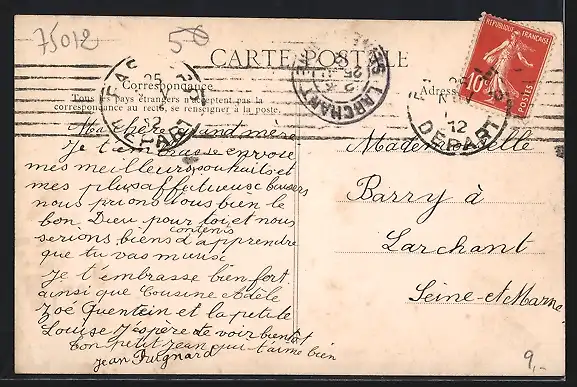 75012
50
CARTE POSTALE
RÉPUBLIQUE FRANÇAISE
10c
POSTES
Correspondance
Tous les pays étrangers n'acceptent pas la
correspondance au recto, se renseigner à la poste.
Adresse
LARCHANT
DEPART
12
Ma chère Grand mère
Je t'embrasse envoie
mes meilleurs souhaits et
mes plus affectueuse baisers
nous prions tous bien le
bon Dieu pour toi, et nous
serions biens contents d'apprendre
que tu vas mieux
Je t'embrasse bien fort
ainsi que Cousine Adèle
Zoé Quentein et la petite
Louise J'espère te voir bientôt
bon petit Jean qui t'aime bien
Jean
Mademoiselle
Barry à
Larchant
Seine-et-Marne
9,-